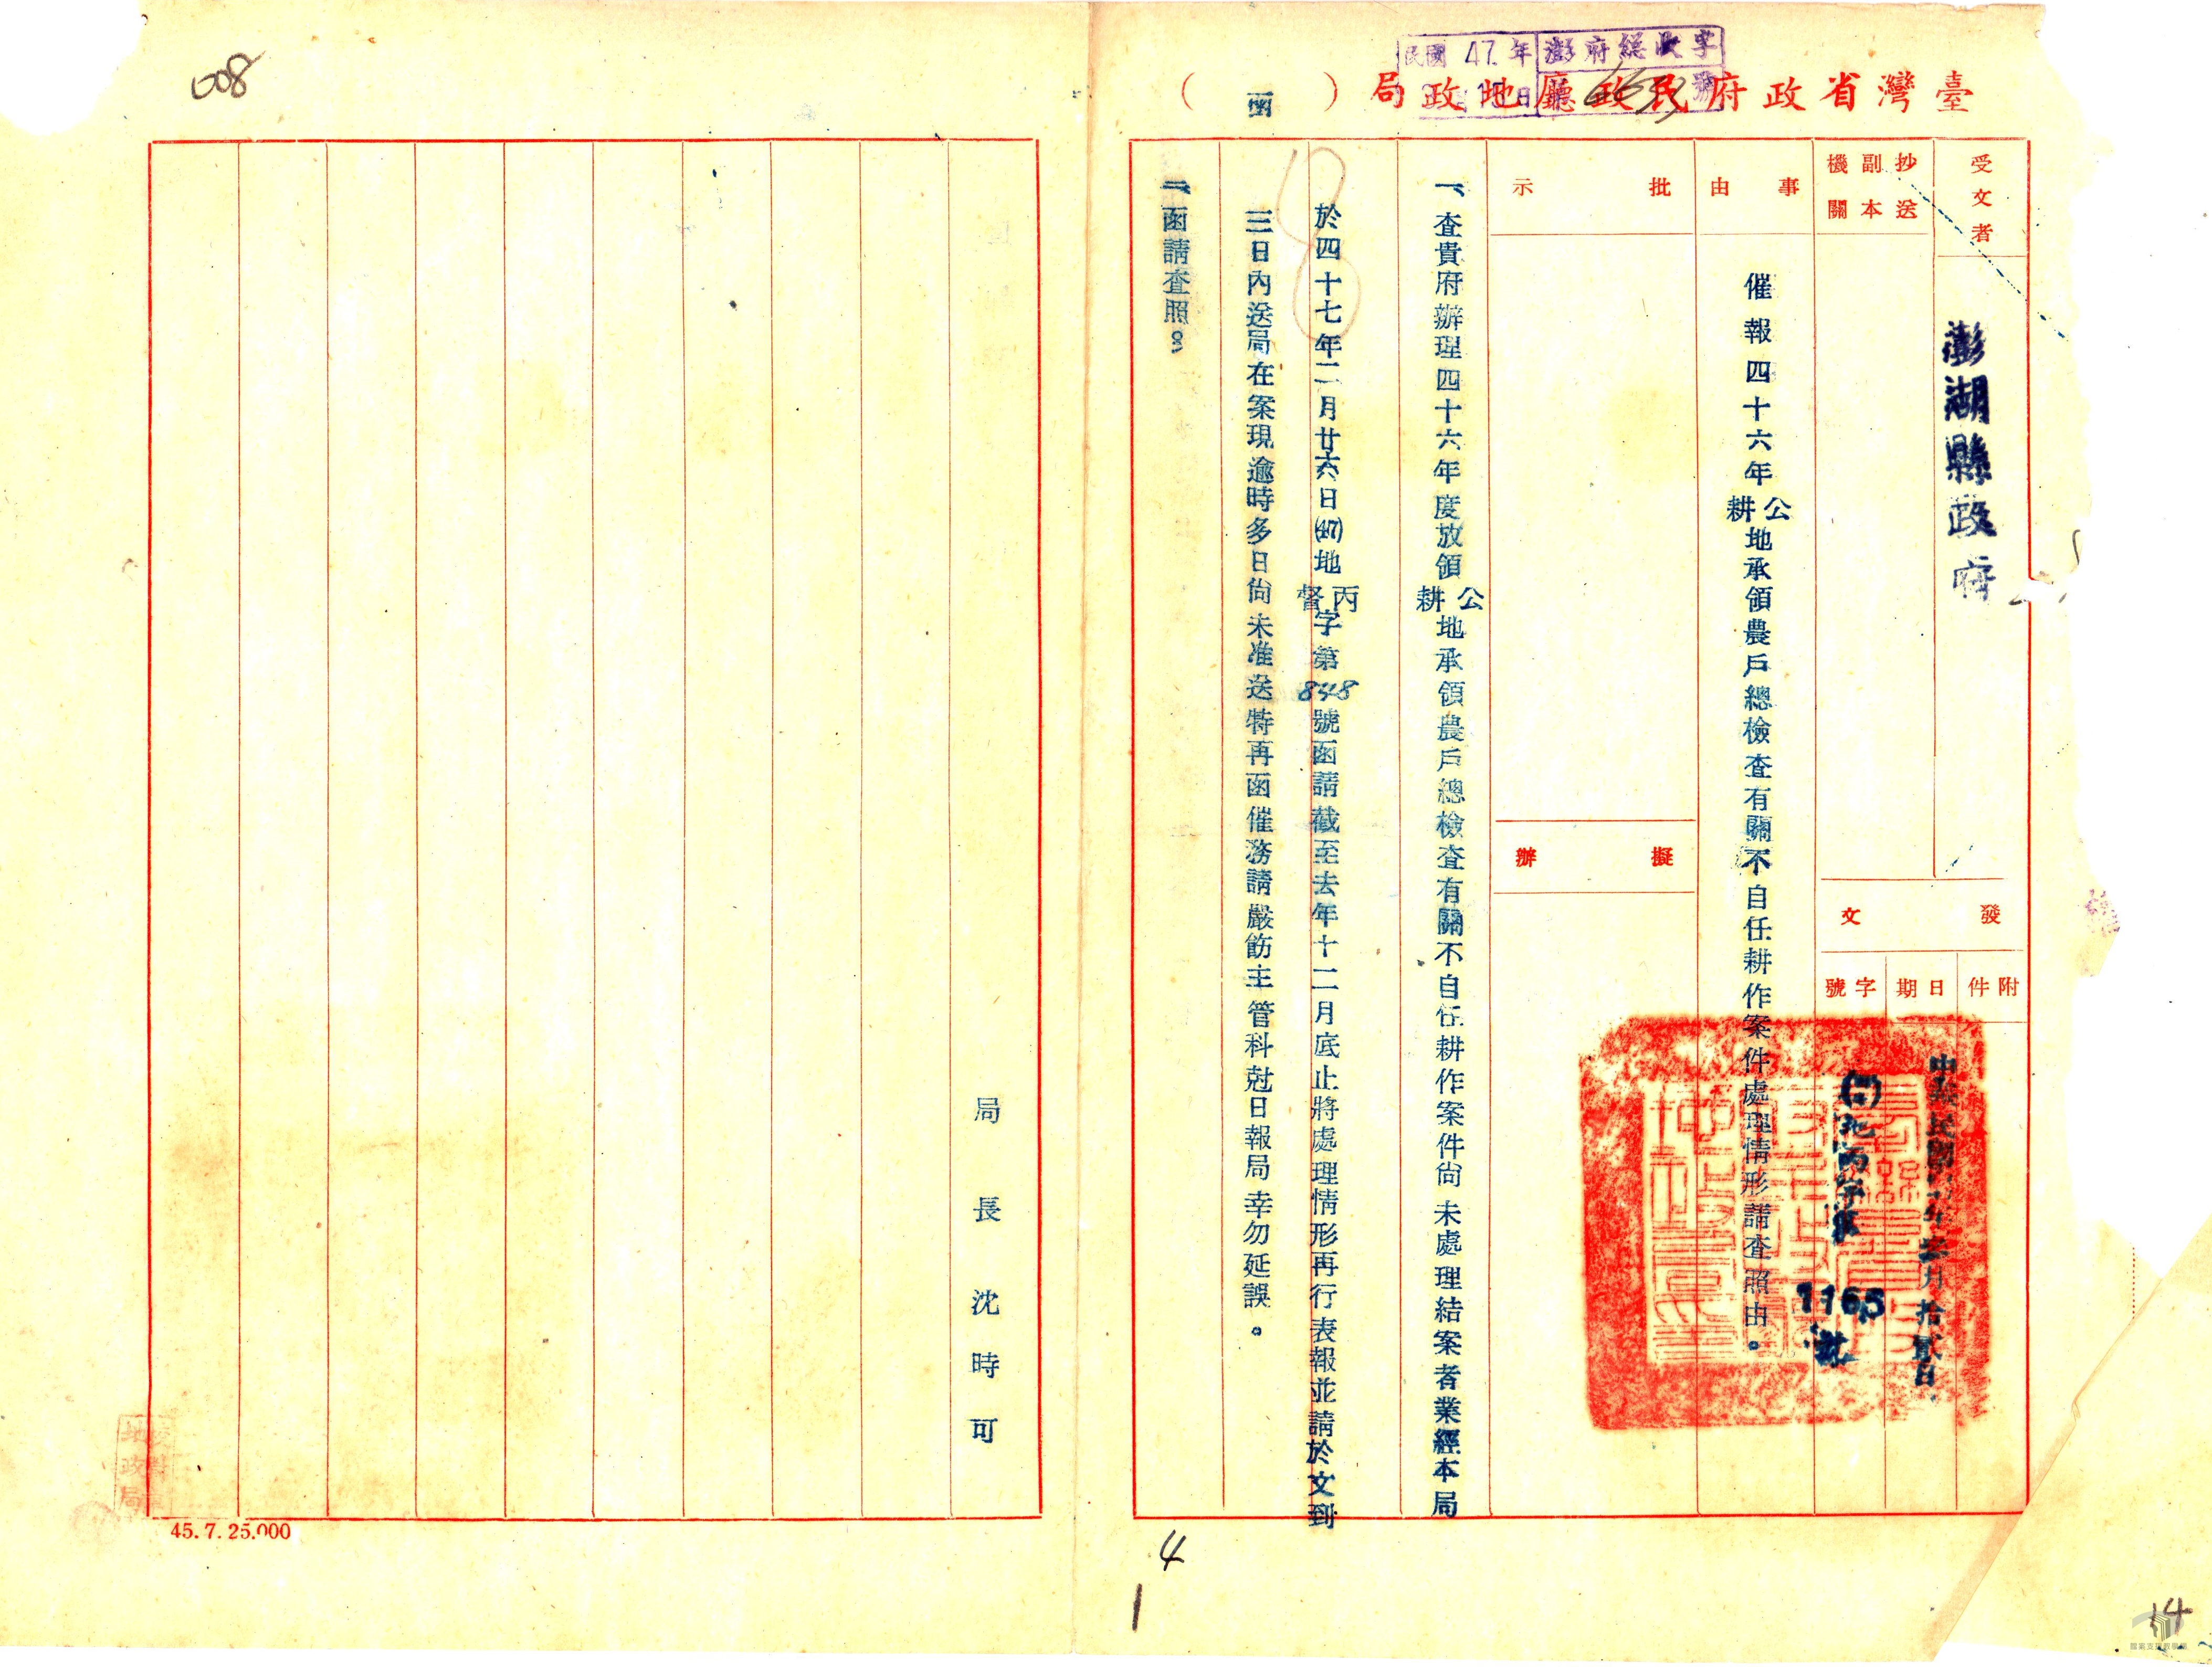 臺灣省政府民政廳地政局（函）
民國47年
澎府總收字
號
15日
受文者
澎湖縣政府
抄送
副本
機關
發文
附件
日期
中華民國四十七年叁月拾貳日
字號
(47)地丙字第
1165
號
事由
催報四十六年公耕地承領農戶總檢查有關不自任耕作案件處理情形請查照由。
批示
擬辦
一、查貴府辦理四十六年度放領公耕地承領農戶總檢查有關不自任耕作案件尚未處理結案者業經本局
於四十七年二月廿六日(47)地丙督字第848號函請截至去年十二月底止將處理情形再行表報並請於文到
三日內送局在案現逾時多日尚未准送特再函催務請嚴飭主管科尅日報局幸勿延誤。
二、函請查照。
局長沈時可
008
45.7.25.000
地政局
4
1
14